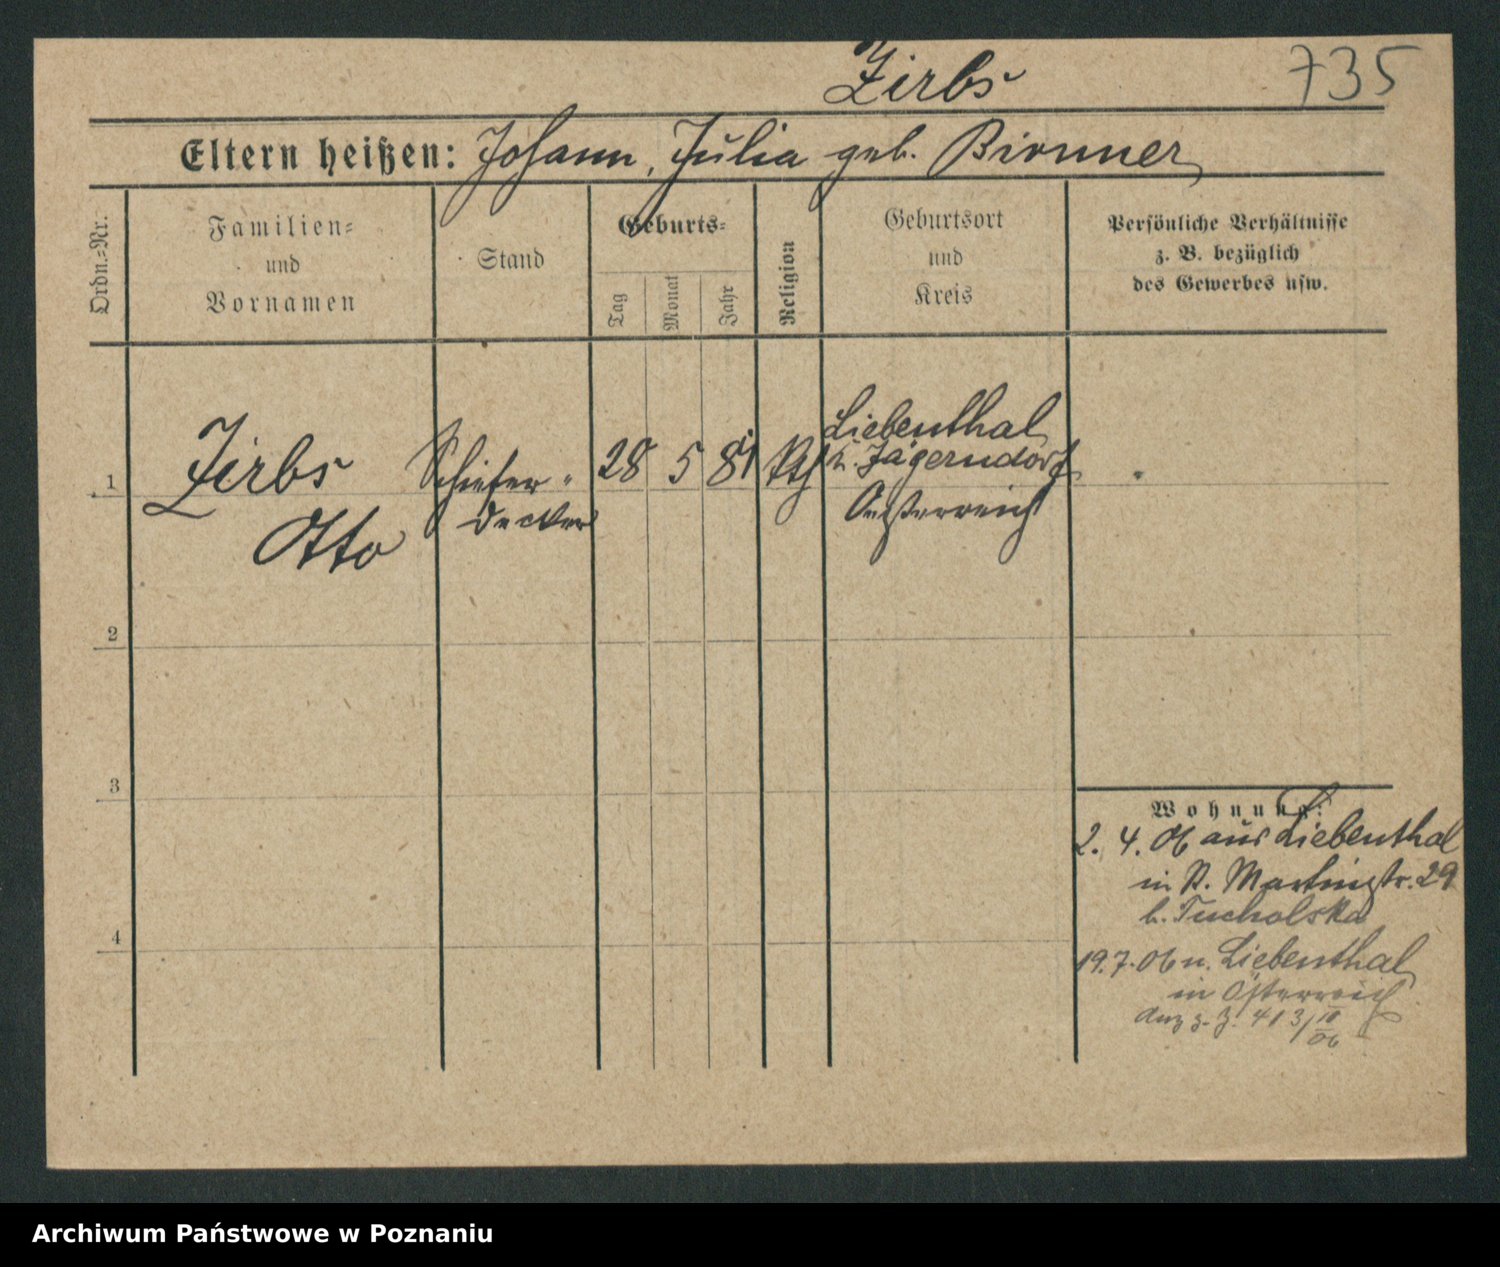 Zirbs 735
Eltern heißen: Johann, Julia geb. Bironner
Ordn.=Nr.
Familien=
und
Vornamen
Stand
Geburts=
Tag
Monat
Jahr
Religion
Geburtsort
und
Kreis
Persönliche Verhältnisse
z. B. bezüglich
des Gewerbes usw.
1
Zirbs
Otto
Schiefer-
decker
28 5 81
kth
Liebenthal
k. Jägerndorf
Oesterreich
2
3
4
Wohnung:
2. 4. 06 aus Liebenthal
in P. Martinstr. 29
b. Tucholska
19. 7. 06 n. Liebenthal
in Österreich
z. Z. 413/
06
Archiwum Państwowe w Poznaniu